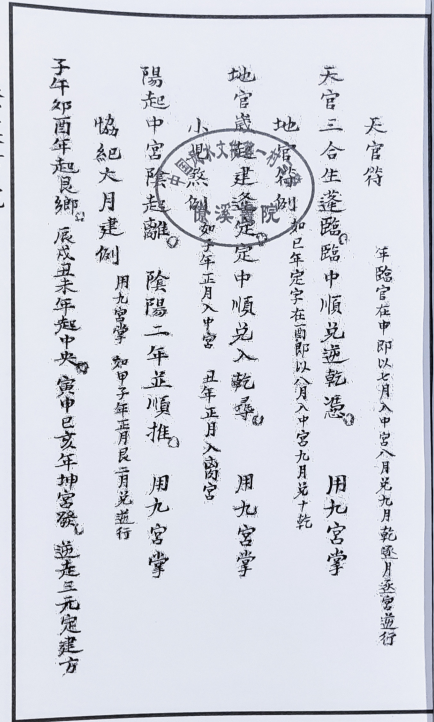 天官符 年臨官在申即以七月入中宮八月兌九月乾逐月逐宮逆行
天官三合生蓬臨臨中順兌逆乾憑 用九宮掌
地官符例 如巳年定字在酉即以八月入中宮九月兌十乾
地官歲起建逢定定中順兌入乾尋 用九宮掌
小兒煞例 如子年正月入中宮 丑年正月入离宮
陽起中宮陰起離 陰陽二年並順推 用九宮掌
恊紀大月建例 用九宮掌 如甲子年正月艮二月兌逆行
子午卯酉年起艮鄉 辰戌丑未年起中央 寅申巳亥年坤宮發 逆走三元定建方
僚溪書院